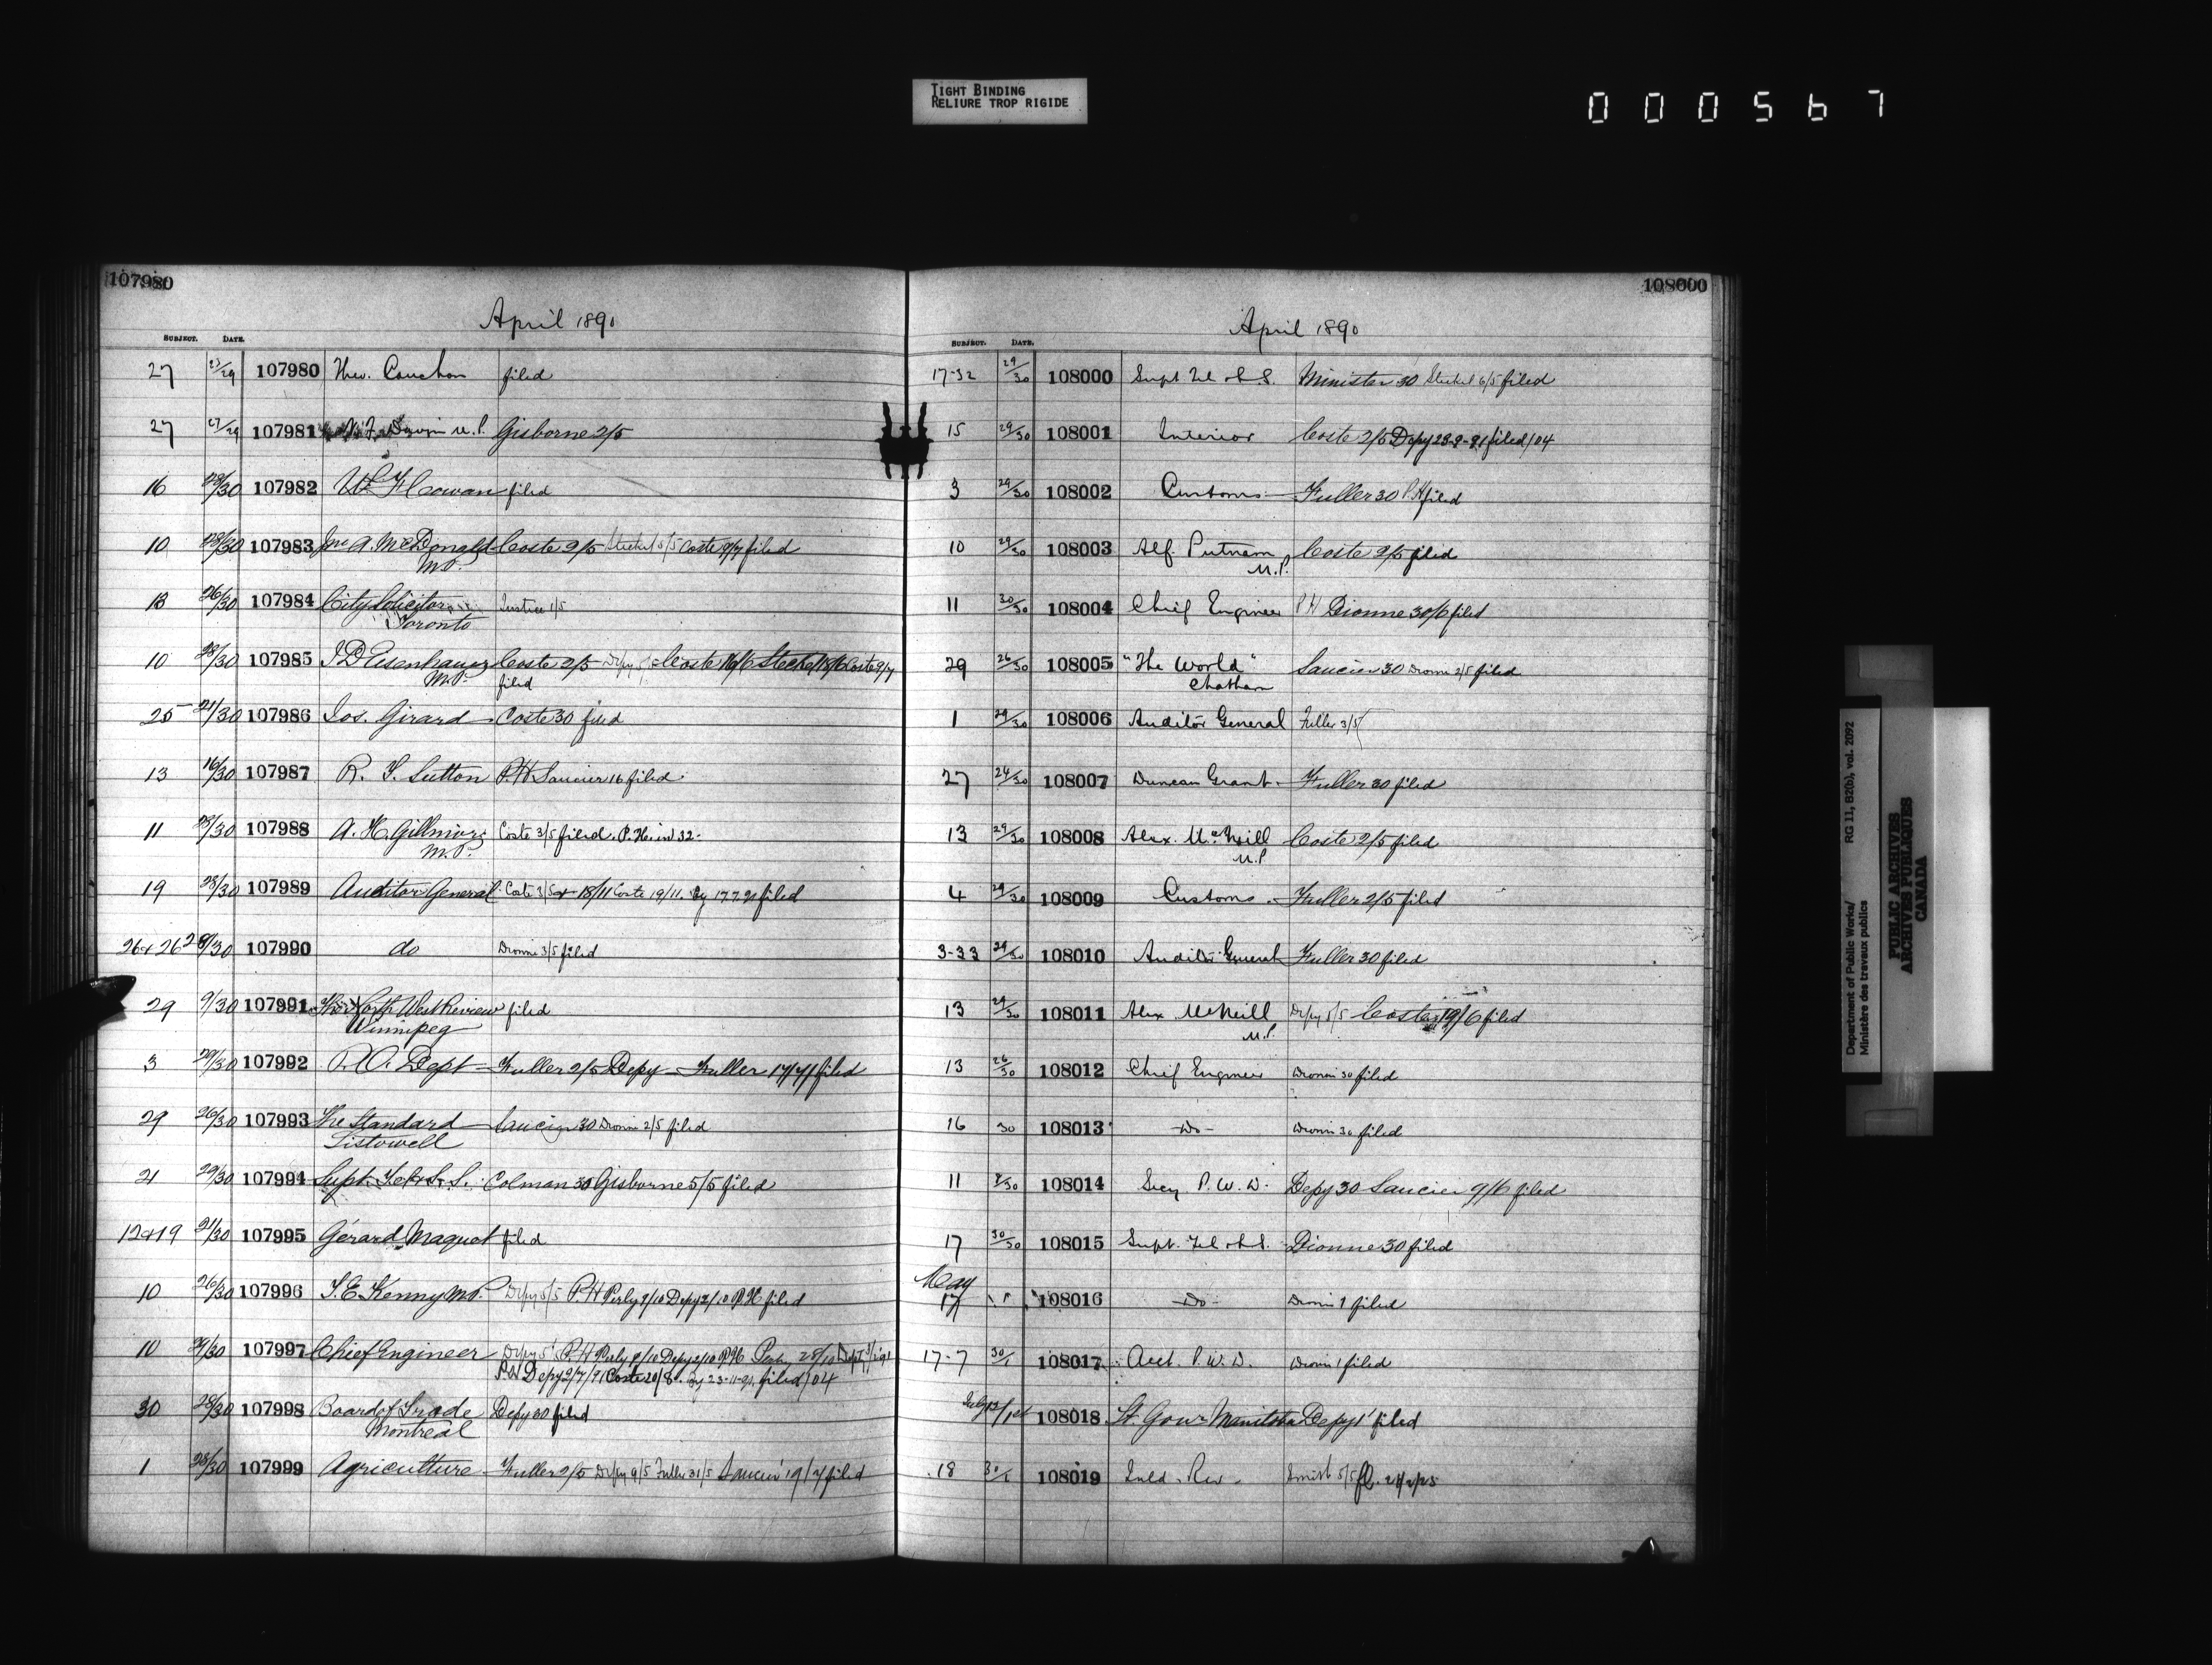 TIGHT BINDING
RELIURE TROP RIGIDE
000567
107980
April 1890
SUBJECT. DATE.
27 27/29 107980 Theo. Cauchon filed
27 27/29 107981 N. F. Davin M.P. Gisborne 2/5
16 28/30 107982 W. F. Cowan filed
10 28/30 107983 Jno A. McDonald Coste 2/5 Steckel 5/5 Coste 9/7 filed
M.P.
13 26/30 107984 City Solicitor Justice 1/5
Toronto
10 28/30 107985 J D Eisenhauer Coste 2/5 Depy Coste 16/6 Steckel 18/6 Coste 9/7
M.P. filed
25 21/30 107986 Jos. Girard Coste 30 filed
13 16/30 107987 R. S. Sutton P.H Saucier 16 filed
11 28/30 107988 A. H. Gillmor Coste 3/5 filed. P.H. in 32.
M.P.
19 28/30 107989 Auditor General Coste 3/5 18/11 Coste 19/11. 17 7 91 filed
26 & 26 28/30 107990 do Dionne 3/5 filed
29 9/30 107991 The North West Review filed
Winnipeg
3 29/30 107992 P.O. Dept Fuller 2/5 Depy Fuller filed
29 26/30 107993 The Standard Saucier 30 Dionne 2/5 filed
Listowell
21 29/30 107994 Supt. Tel & S. S. Colman 30 Gisborne 5/5 filed
12 & 19 21/30 107995 Gérard Maquet filed
10 26/30 107996 T. E. Kenny M.P. Depy 5/5 P.H Perly 9/10 Depy 2/10 P.H filed
10 29/30 107997 Chief Engineer Depy 5 P.H Perly 9/10 Depy 2/10 P.H Perly 28/10
P.H Depy 2/7/91 Coste 20/8. 23-11-91. filed/04
30 28/30 107998 Board of Trade Depy 30 filed
Montreal
1 28/30 107999 Agriculture Fuller 2/5 Depy 9/5 Fuller 31/5 Saucier 19/7 filed
108000
April 1890
SUBJECT. DATE.
17-32 29/30 108000 Supt Tel & S. S. Minister 30 Steckel 6/5 filed
15 29/30 108001 Interior Coste 2/5 Depy 23-9-91 filed/04
3 29/30 108002 Customs Fuller 30 P.H filed
10 29/30 108003 Alf. Putnam Coste 2/5 filed
M.P.
11 30/30 108004 Chief Engineer P.H Dionne 30/6 filed
29 26/30 108005 "The World" Saucier 30 Dionne 2/5 filed
Chatham
1 29/30 108006 Auditor General Fuller 3/5
27 24/30 108007 Duncan Grant Fuller 30 filed
13 29/30 108008 Alex. McNeill Coste 2/5 filed
M.P
4 29/30 108009 Customs Fuller 2/5 filed
3-33 29/30 108010 Auditor General Fuller 30 filed
13 29/30 108011 Alex McNeill Depy 5/5 Coste 19/6 filed
M.P.
13 26/30 108012 Chief Engineer Dionne 30 filed
16 30 108013 -Do- Dionne 30 filed
11 108014 Secy P. W. D. Depy 30 Saucier 9/6 filed
17 30/30 108015 Supt. Tel & S.S. Dionne 30 filed
May
17 1 108016 -Do- Dionne 1 filed
17-7 30/1 108017 Acct. P. W. D. Dionne 1 filed
108018 Lt Govr Manitoba Depy 1 filed
18 30/1 108019 Inld. Rev. Smith 5/5
Department of Public Works/ RG 11, B2(b), vol. 2092
Ministère des travaux publics
PUBLIC ARCHIVES
ARCHIVES PUBLIQUES
CANADA